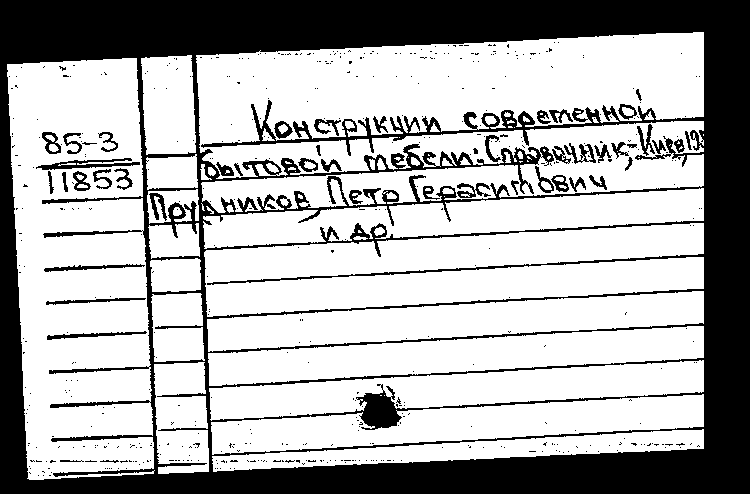 85-3
11853
Конструкции современной
бытовой мебели: Справочник,- Киев,
Прудников, Петр Герасимович
и др.